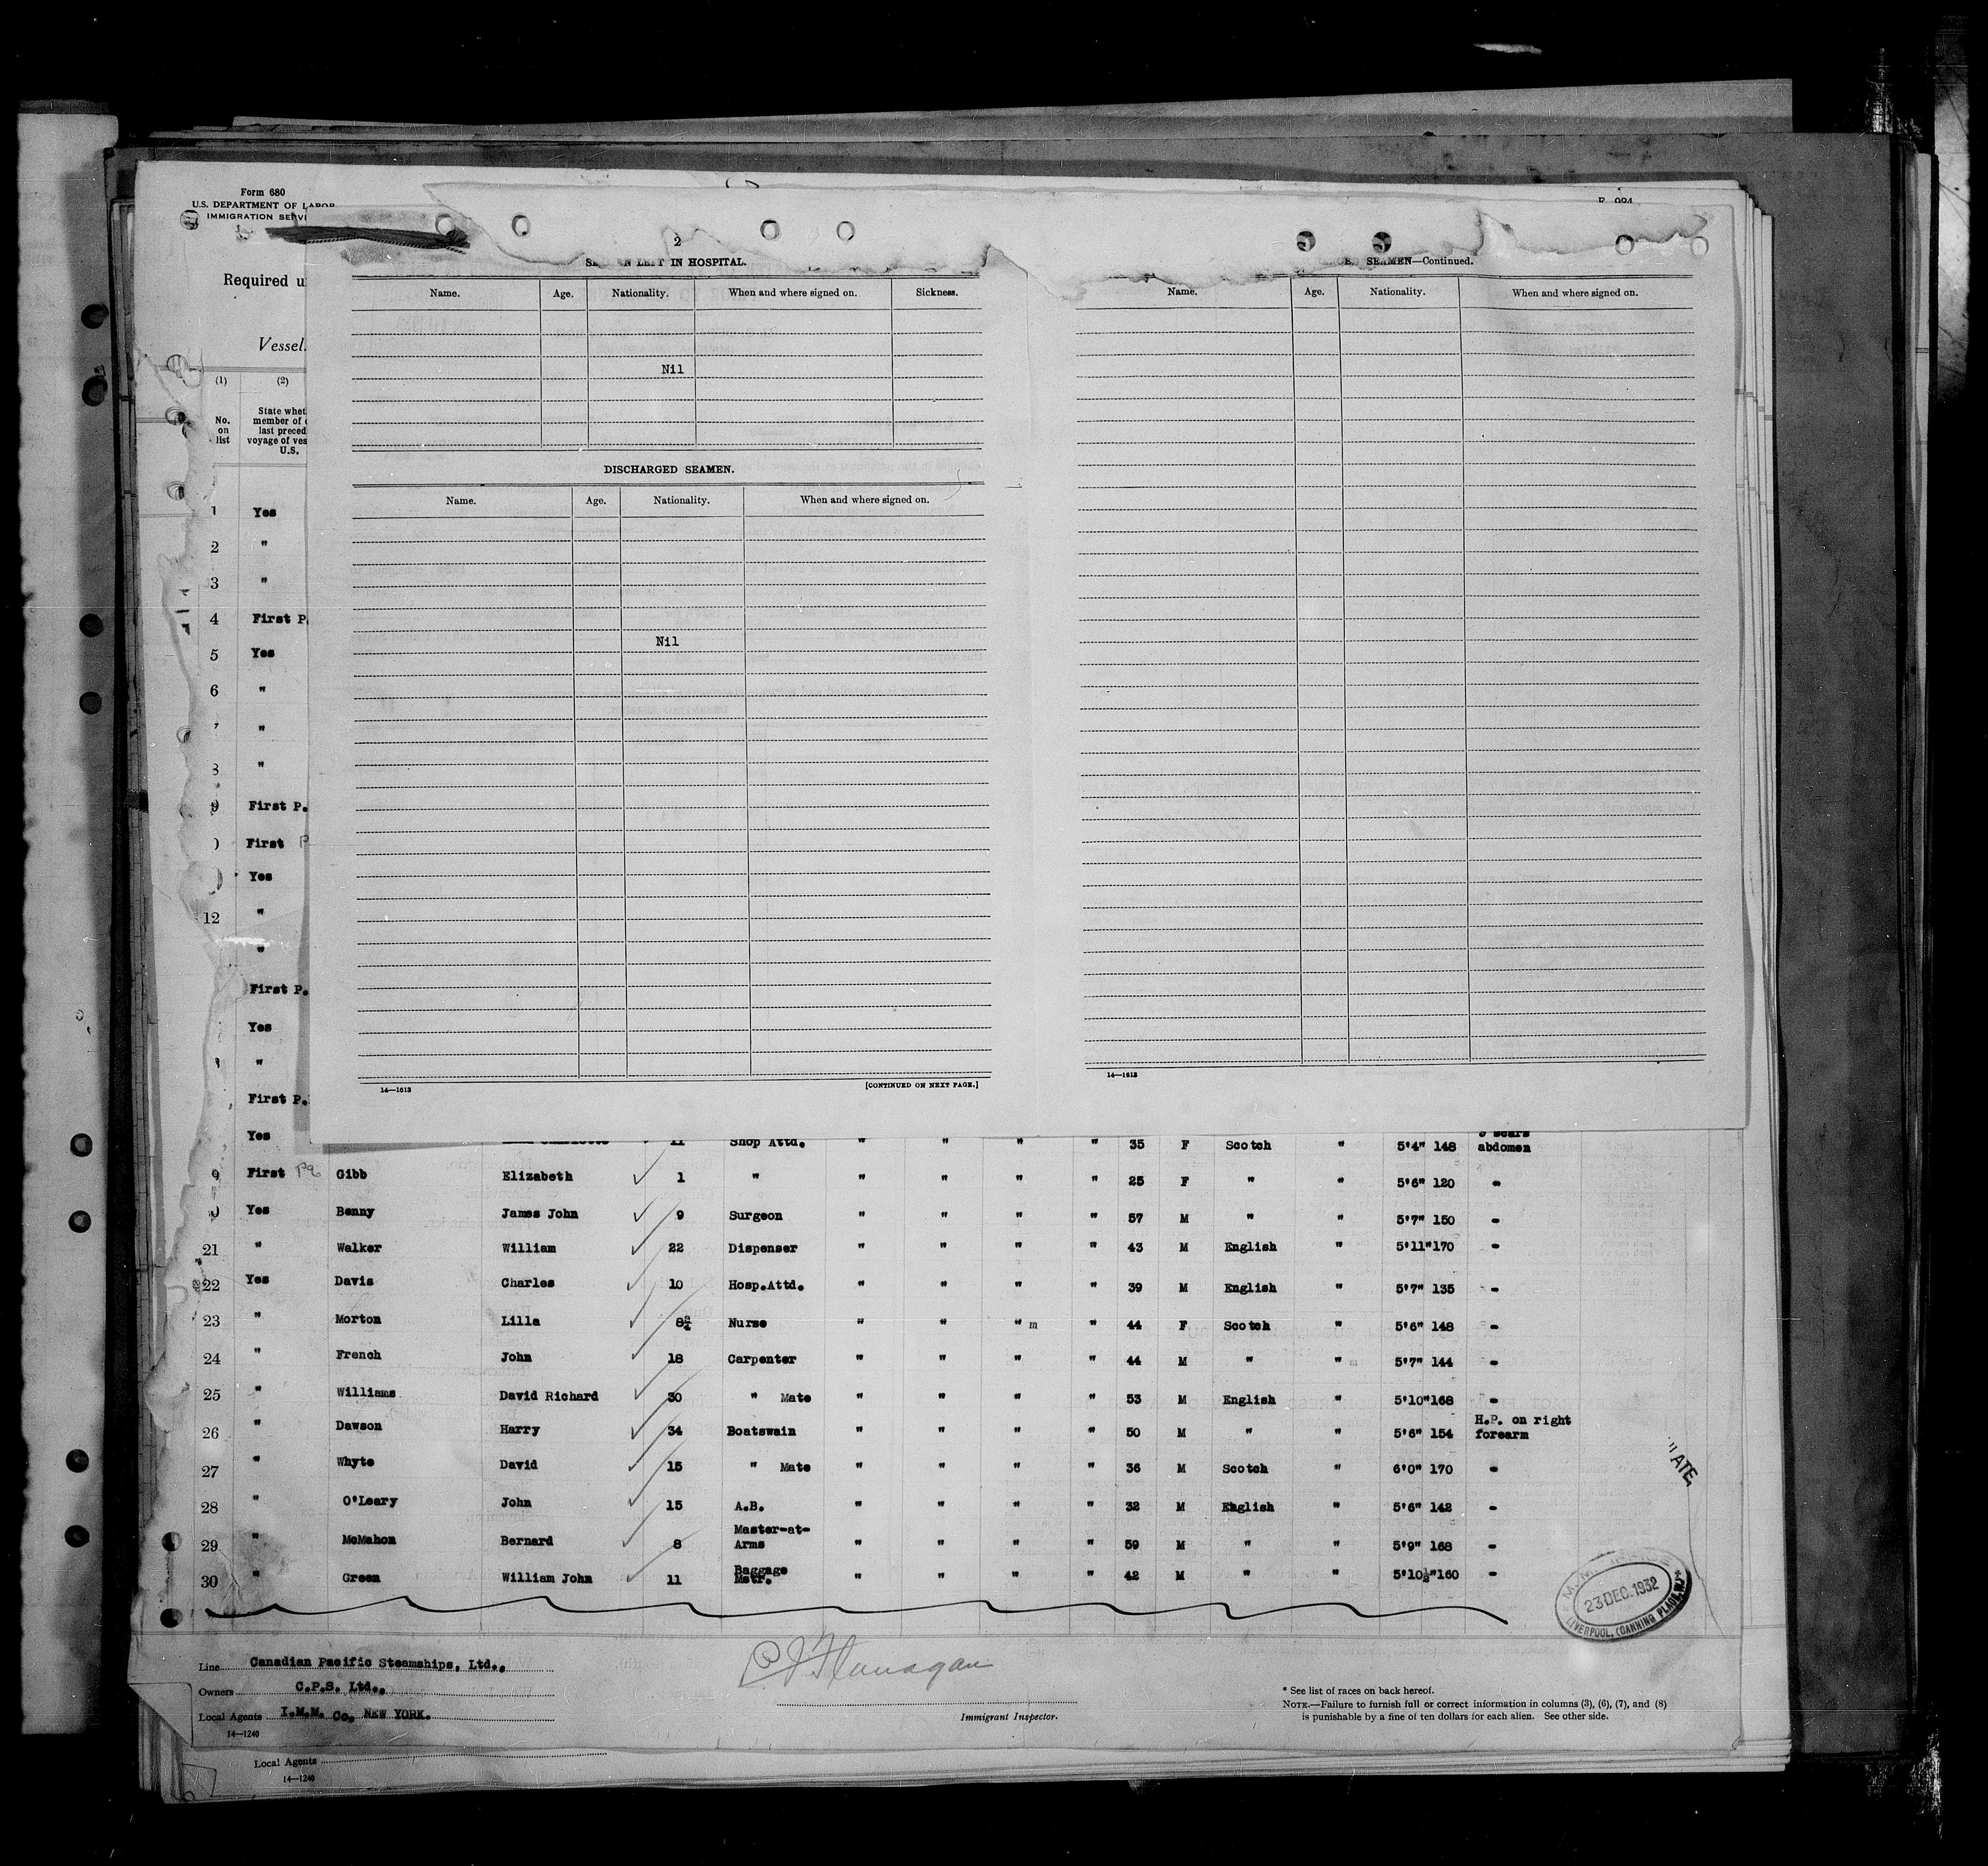 Form 680
U.S. DEPARTMENT OF LABOR
IMMIGRATION
Required
Vessel
(1) (2)
No. on list
State
member of
last
voyage of
U.S.
2
IN HOSPITAL.
Name. Age. Nationality. When and where signed on. Sickness.
Nil
DISCHARGED SEAMEN.
Name. Age. Nationality. When and where signed on.
Nil
14—1613 [CONTINUED ON NEXT PAGE.]
SEAMEN—Continued.
Name. Age. Nationality. When and where signed on.
14—1613
1 Yes
2 "
3 "
4 First P.
5 Yes
6 "
"
"
9 First P.
First P
Yes
12 "
"
First P.
Yes
"
First P.
Yes 11 Shop Attd. " " " " 35 F Scotch " 5'4" 148 scars abdomen
9 First Gibb Elizabeth ✓ 1 " " " " " 25 F " " 5'6" 120 -
Yes Benny James John ✓ 9 Surgeon " " " " 57 M " " 5'7" 150 -
21 " Walker William ✓ 22 Dispenser " " " " 43 M English " 5'11" 170 -
22 Yes Davis Charles ✓ 10 Hosp.Attd. " " " " 39 M English " 5'7" 135 -
23 " Morton Lilla ✓ Nurse " " " m " 44 F Scotch " 5'6" 148 -
24 " French John ✓ 18 Carpenter " " " " 44 M " " 5'7" 144 -
25 " Williams David Richard ✓ 30 " Mate " " " " 53 M English " 5'10" 168 -
26 " Dawson Harry ✓ 34 Boatswain " " " " 50 M " " 5'6" 154 H.P. on right forearm
27 " Whyte David ✓ 15 " Mate " " " " 36 M Scotch " 6'0" 170 -
28 " O'Leary John ✓ 15 A.B. " " " " 32 M English " 5'6" 142 -
29 " McMahon Bernard ✓ 8 Master-at-Arms " " " " 59 M " " 5'9" 168 -
30 " Green William John ✓ 11 Baggage Mstr. " " " " 42 M " " 5'10½" 160 -
23 DEC. 1932
LIVERPOOL, (CANNING PLACE,
Line Canadian Pacific Steamships, Ltd.,
Owners C.P.S. Ltd.,
Local Agents I.M.M. Co, NEW YORK.
14—1240
Flanagan
Immigrant Inspector.
* See list of races on back hereof.
NOTE.—Failure to furnish full or correct information in columns (3), (6), (7), and (8)
is punishable by a fine of ten dollars for each alien. See other side.
Local Agents
14—1240